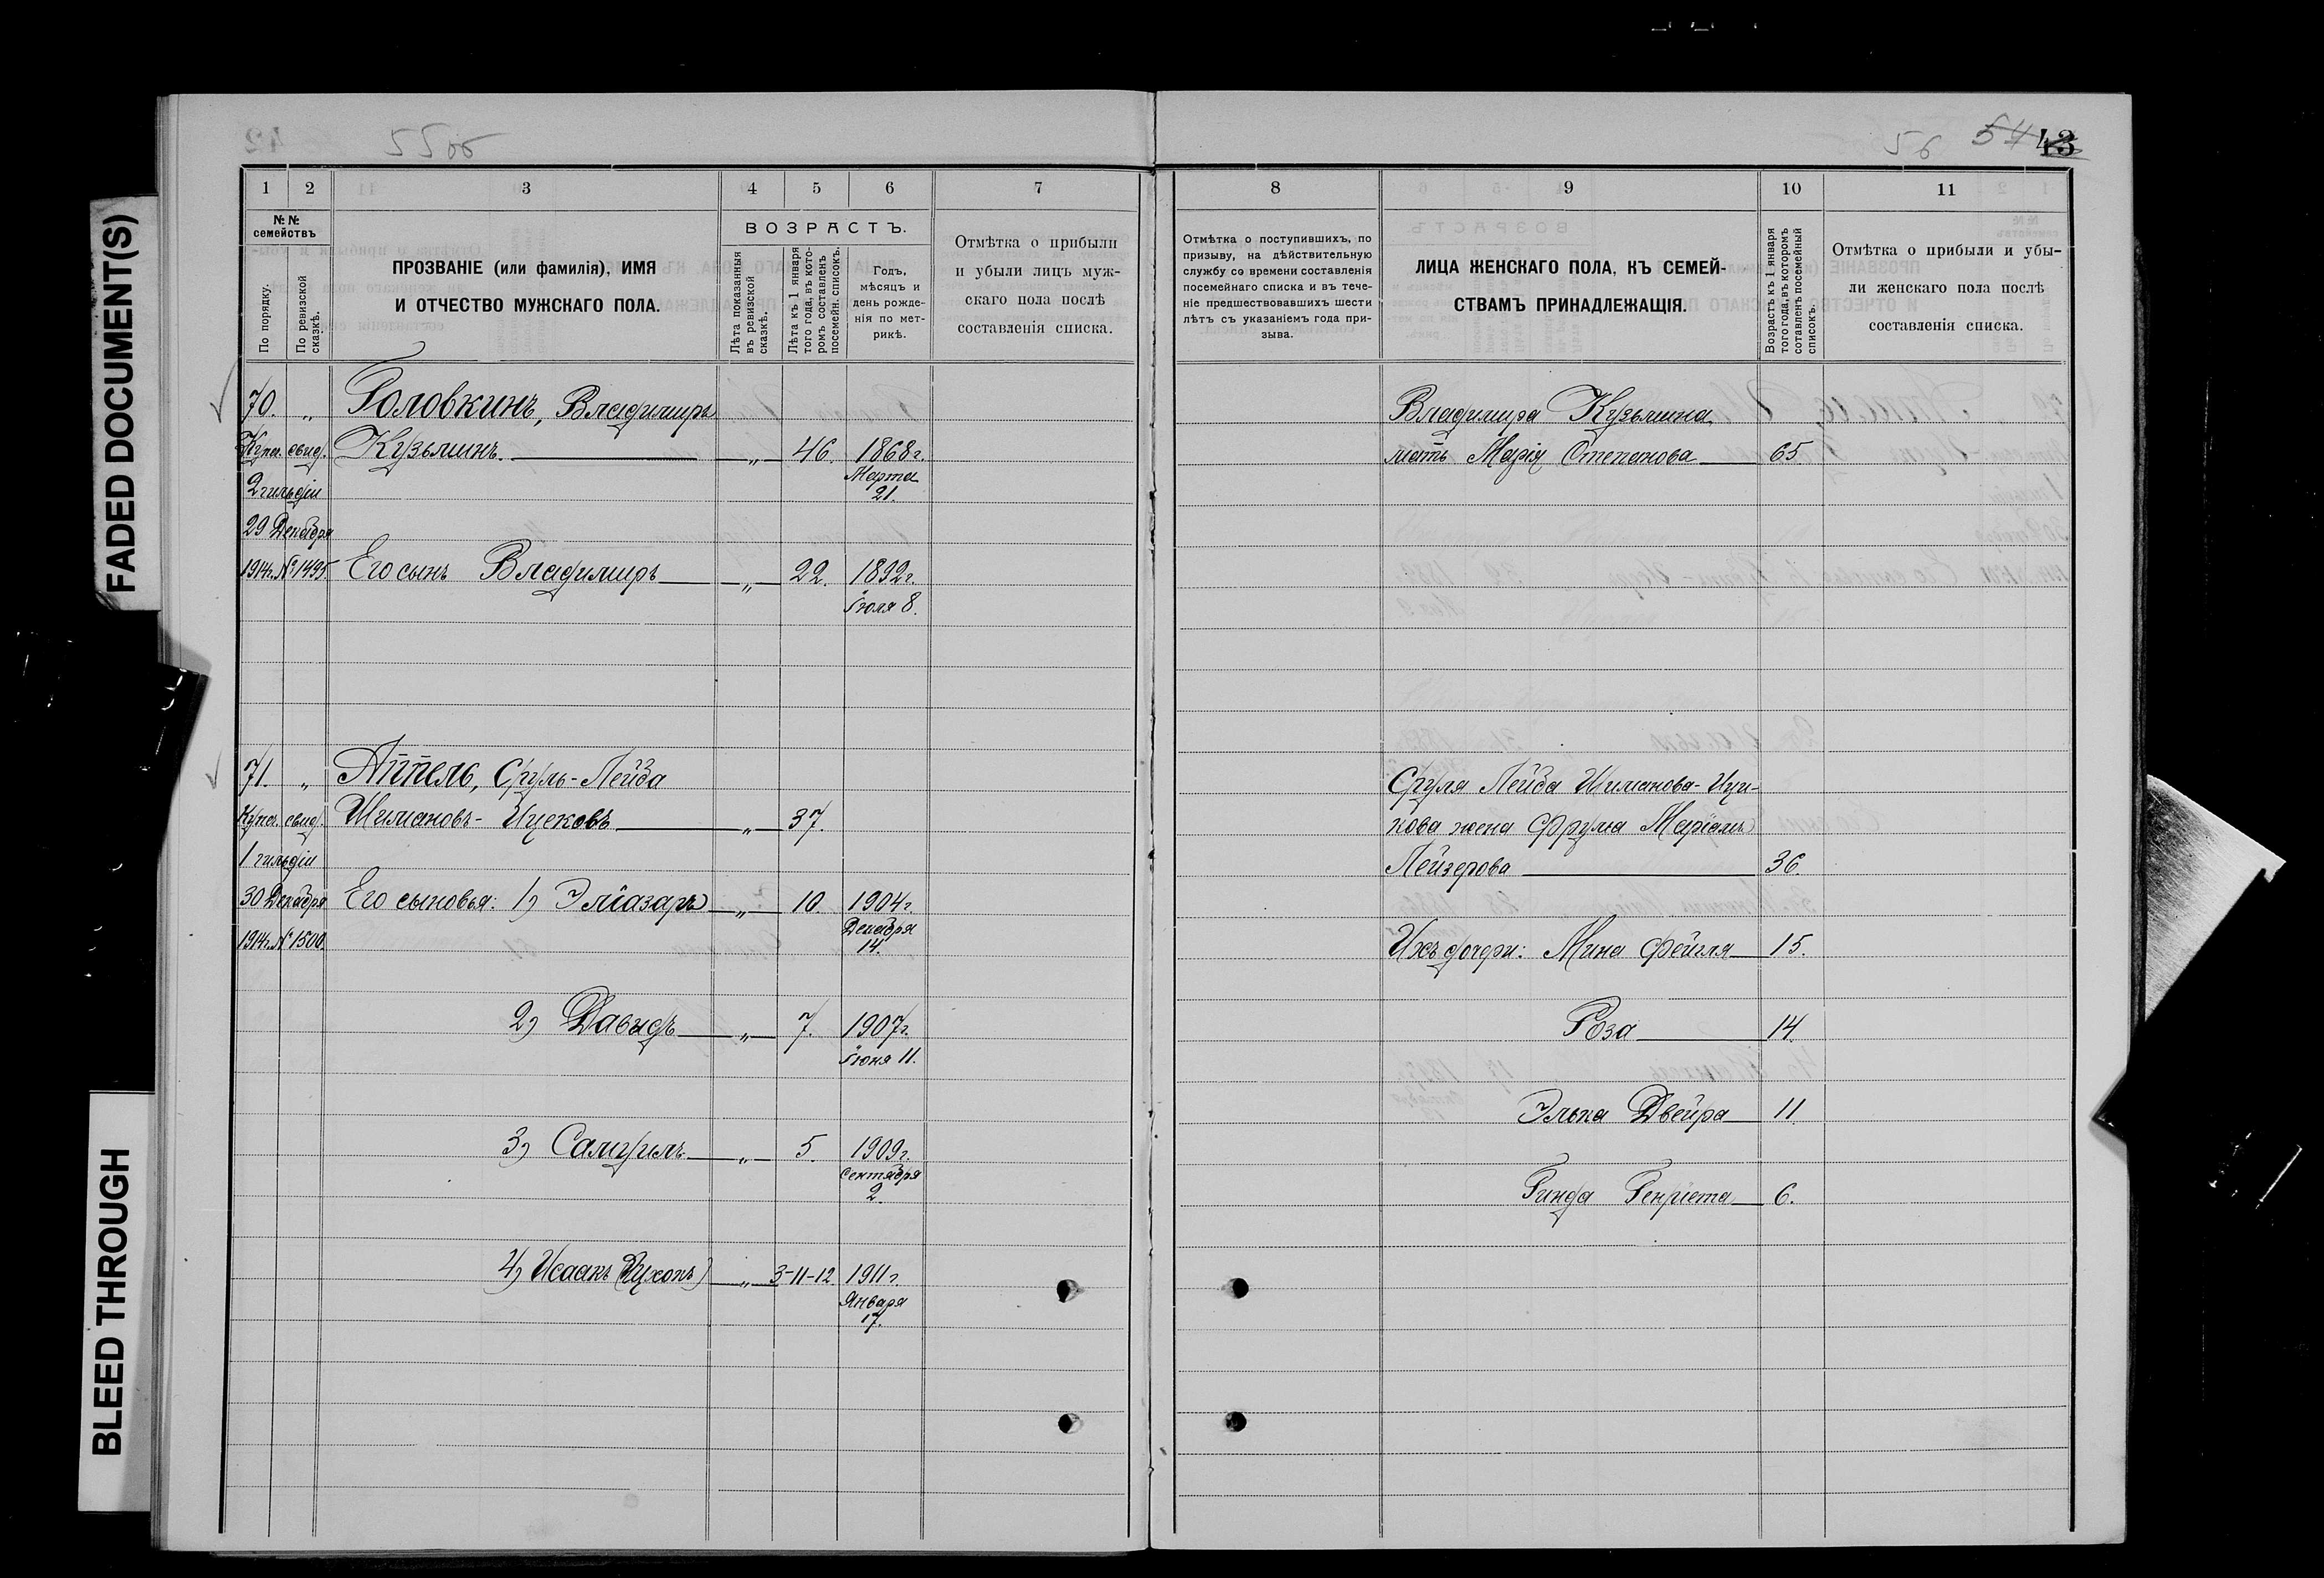 FADED DOCUMENT(S)
BLEED THROUGH
55об
56 54 43
1 2 3 4 5 6 7
№№ семействъ
По порядку.
По ревизской сказкѣ.
ПРОЗВАНІЕ (или фамилія), ИМЯ
И ОТЧЕСТВО МУЖСКАГО ПОЛА.
ВОЗРАСТЪ.
Лѣта показанныя въ ревизской сказкѣ.
Лѣта къ 1 января того года, въ которомъ составленъ посемейн. списокъ.
Годъ,
мѣсяцъ и
день рожде-
нія по мет-
рикѣ.
Отмѣтка о прибыли
и убыли лицъ муж-
скаго пола послѣ
составленія списка.
70. „ Головкинъ, Владимиръ
Купч. свид. Кузьминъ. „ 46. 1868г.
2 гильдіи Марта
21.
29 Декабря
1914г. № 1495. Его сынъ Владимиръ „ 22. 1892г.
Іюля 8.
71. „ Аппель, Сруль-Лейба
Купч. свид. Шимановъ-Ицековъ „ 37.
1 гильдіи
30 Декабря Его сыновья: 1) Эліазаръ „ 10. 1904г.
Декабря
1914г. № 1500. 14.
2) Давыдъ „ 7. 1907г.
Іюня 11.
3) Самуилъ „ 5. 1909г.
Сентября
2.
4) Исаакъ (Ицхокъ) „ 3-11-12. 1911г.
Января
17.
8 9 10 11
Отмѣтка о поступившихъ, по
призыву, на дѣйствительную
службу со времени составленія
посемейнаго списка и въ тече-
ніе предшествовавшихъ шести
лѣтъ съ указаніемъ года при-
зыва.
ЛИЦА ЖЕНСКАГО ПОЛА, КЪ СЕМЕЙ-
СТВАМЪ ПРИНАДЛЕЖАЩІЯ.
Возрастъ къ 1 января
того года, въ которомъ
сотавленъ посемейный
списокъ.
Отмѣтка о прибыли и убы-
ли женскаго пола послѣ
составленія списка.
Владимира Кузьмина
мать Марія Степанова 65.
Сруля Лейба Шиманова-Ици-
кова жена Фрума Маріамъ
Лейзерова 36.
Ихъ дочери: Мина Фейгля 15.
Роза 14.
Элька Двейра 11.
Гинда Генріета 6.